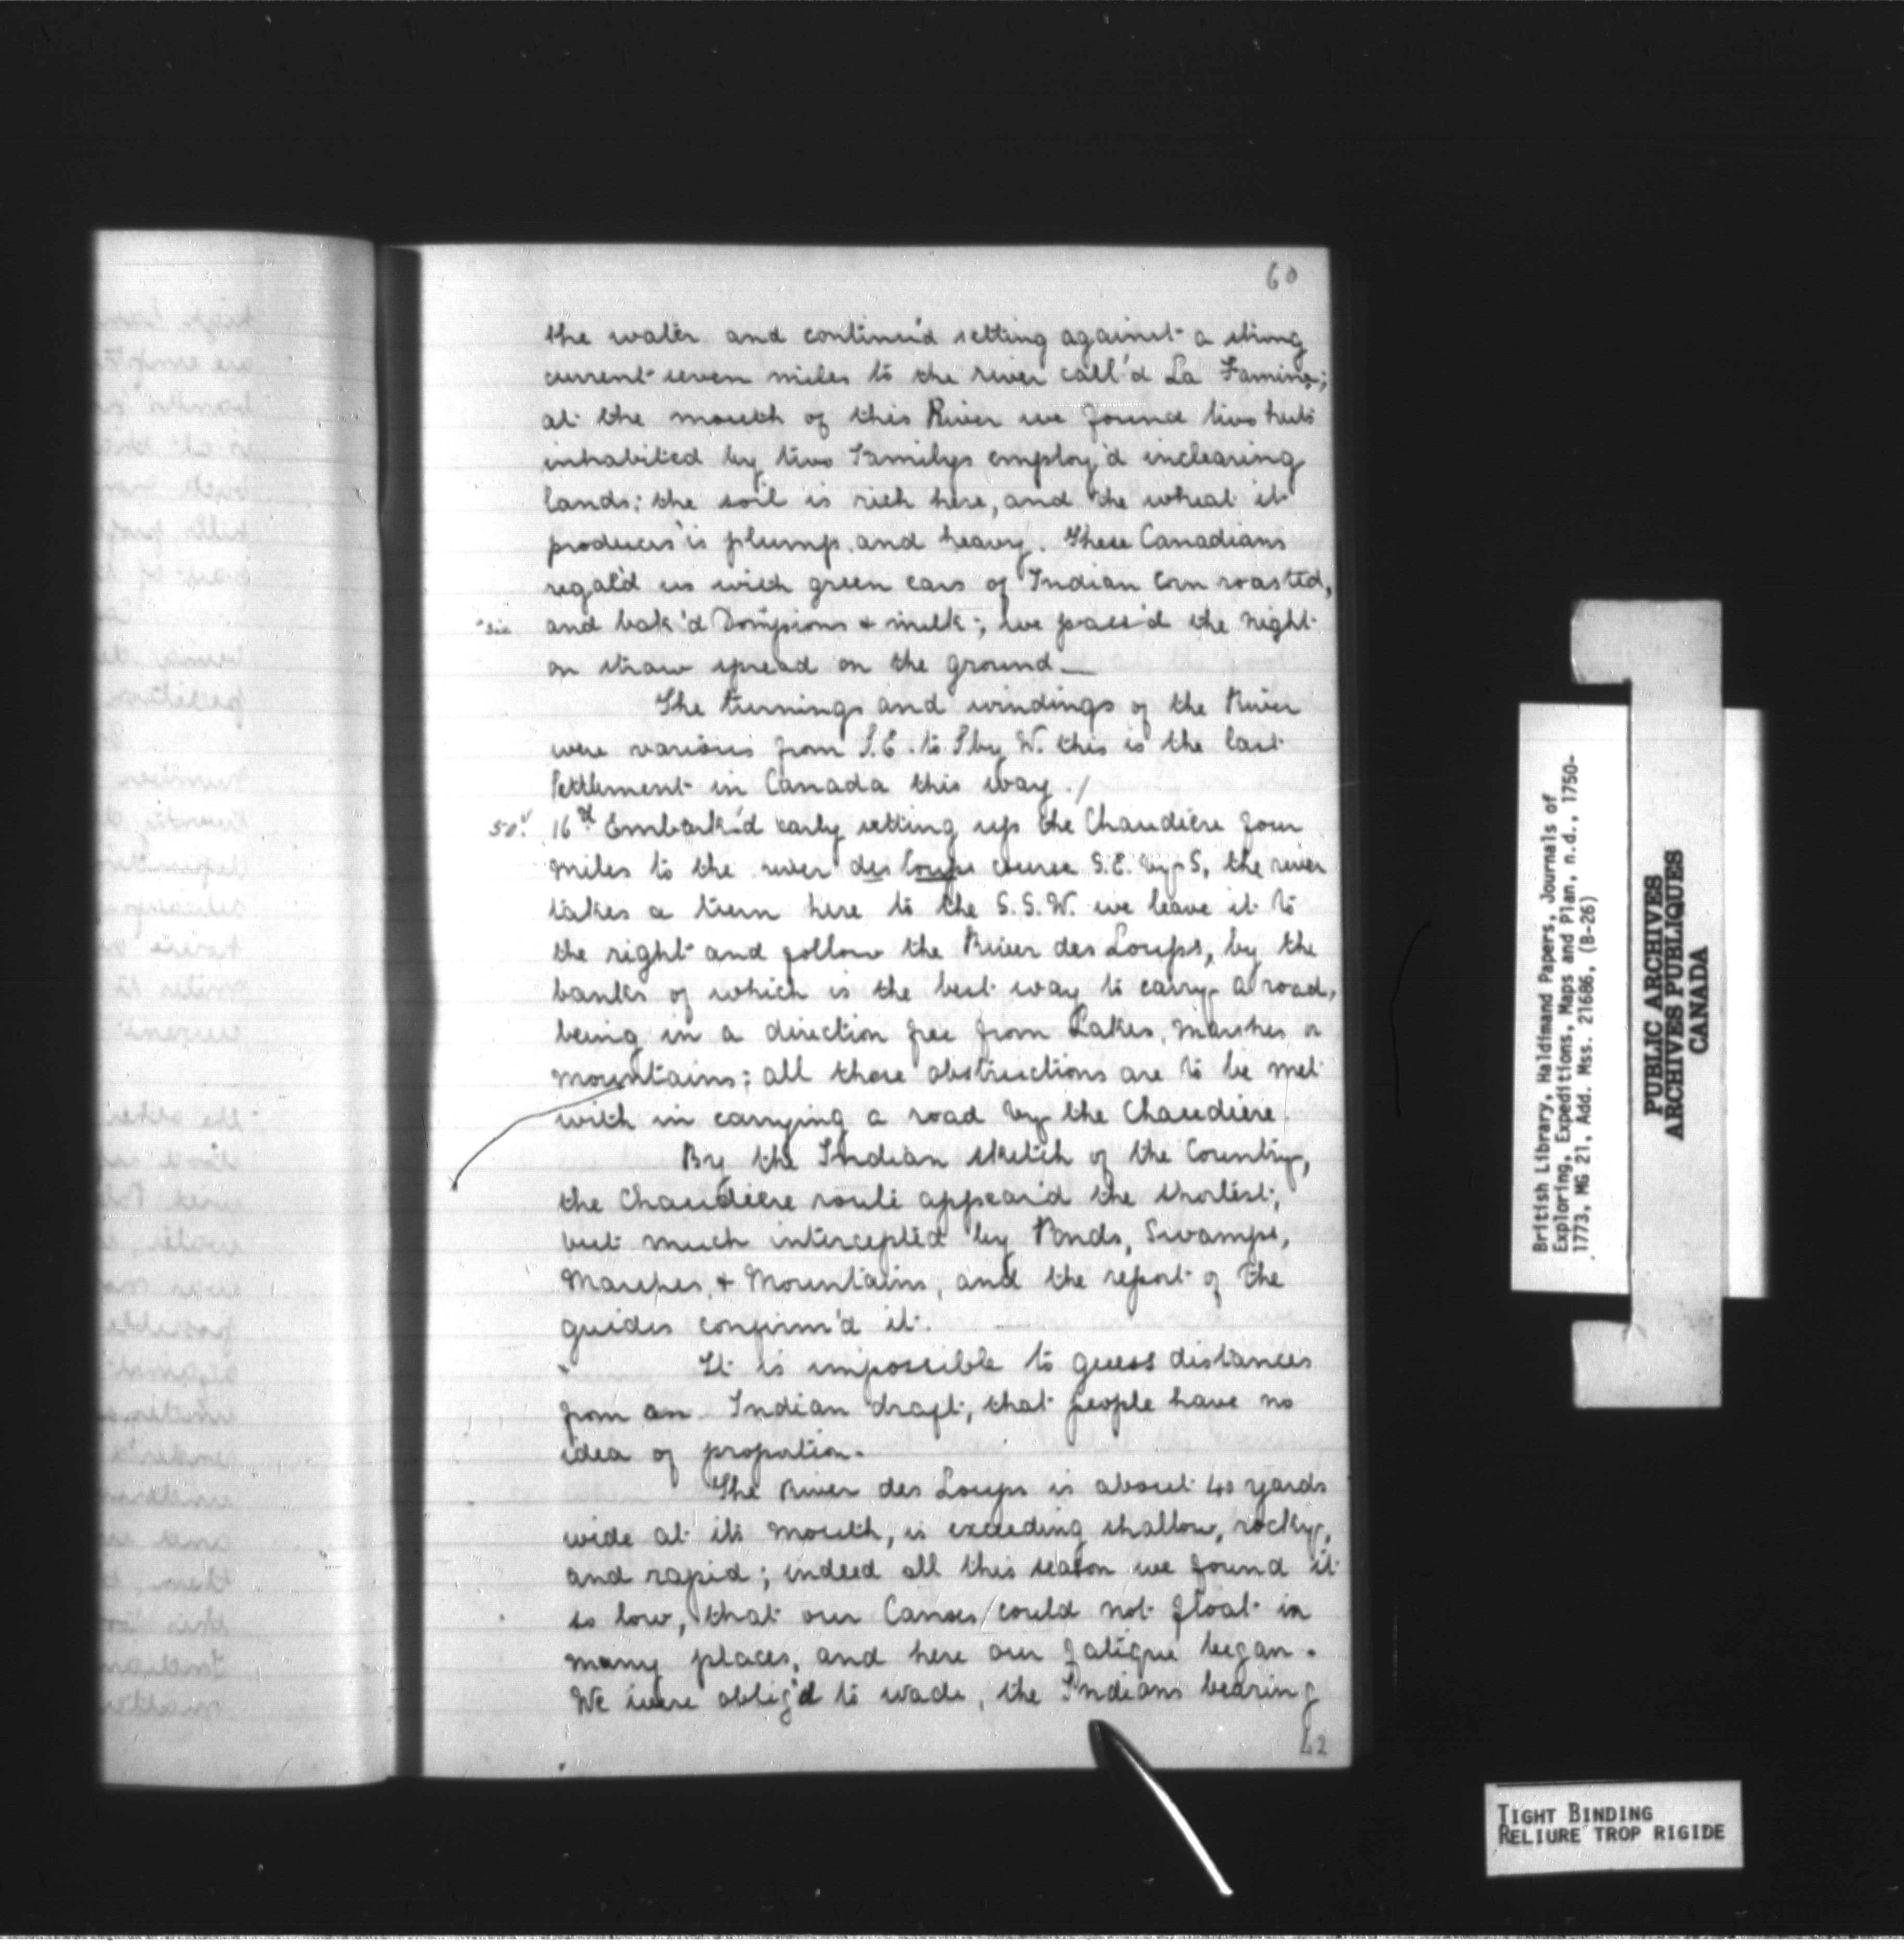 60
the water and continu'd setting against a strong
current seven miles to the river call'd La Famine;
at the mouth of this River we found two huts
inhabited by two Familys employ'd inclearing
lands: the soil is rich here, and the wheat it
produces is plump and heavy. These Canadians
regal'd us with green ears of Indian Corn roasted,
sic and bak'd Dompions & milk; we pass'd the night
on straw spread on the ground_
The turnings and windings of the River
were various from S.E. to S by W. this is the last
Settlement in Canada this way./
50. 16 Embark'd early setting up the Chaudiere four
miles to the river des Loups course S.E. by S, the river
takes a turn here to the S.S.W. we leave it to
the right and follow the River des Loups, by the
banks of which is the best way to carry a road,
being in a direction free from Lakes, Marshes or
Mountains; all those obstructions are to be met
with in carrying a road by the Chaudiere.
By the Indian sketch of the Country,
the Chaudiere route appear'd the shortest,
but much intercepted by Ponds, Swamps,
Marshes, & Mountains, and the report of the
guides confirm'd it.
It is impossible to guess distances
from an Indian draft, that people have no
idea of proportion.
The River des Loups is about 40 yards
wide at its mouth, is exceeding shallow, rocky,
and rapid; indeed all this season we found it
so low, that our Canoes could not float in
many places, and here our fatigue began.
We were oblig'd to wade, the Indians bearing
42
British Library, Haldimand Papers, Journals of
Exploring, Expeditions, Maps and Plan, n.d., 1750-
1773, MG 21, Add. Mss. 21686, (B-26)
PUBLIC ARCHIVES
ARCHIVES PUBLIQUES
CANADA
TIGHT BINDING
RELIURE TROP RIGIDE